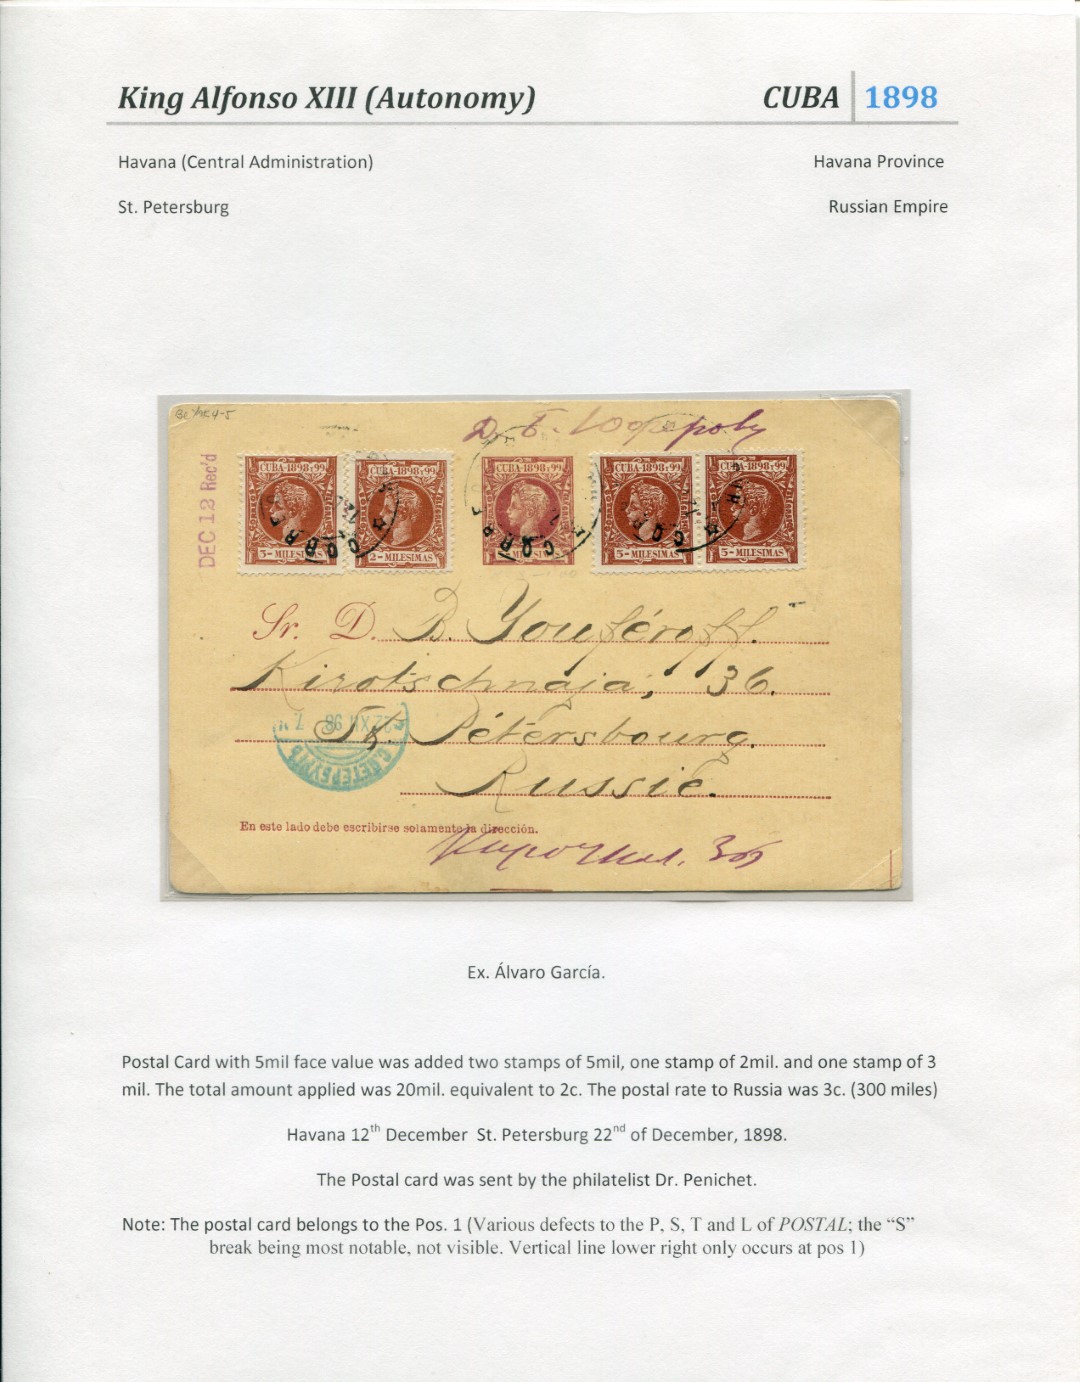 King Alfonso XIII (Autonomy) CUBA 1898
Havana (Central Administration) Havana Province
St. Petersburg Russian Empire
DEC 12 Rec'd
CUBA·1898 y 99
3-MILESIMAS
CUBA·1898 y 99
2-MILESIMAS
CUBA·1898 y 99
MILESIMAS
CUBA·1898 y 99
5-MILESIMAS
CUBA·1898 y 99
5-MILESIMAS
Sr. D. B. Youféroff.
Kirotschnaja, 36.
St. Pétersbourg.
Russie.
22 XII 98
С.ПЕТЕРБУРГЪ
En este lado debe escribirse solamente la dirección.
36
Ex. Álvaro García.
Postal Card with 5mil face value was added two stamps of 5mil, one stamp of 2mil. and one stamp of 3
mil. The total amount applied was 20mil. equivalent to 2c. The postal rate to Russia was 3c. (300 miles)
Havana 12th December St. Petersburg 22nd of December, 1898.
The Postal card was sent by the philatelist Dr. Penichet.
Note: The postal card belongs to the Pos. 1 (Various defects to the P, S, T and L of POSTAL; the “S”
break being most notable, not visible. Vertical line lower right only occurs at pos 1)